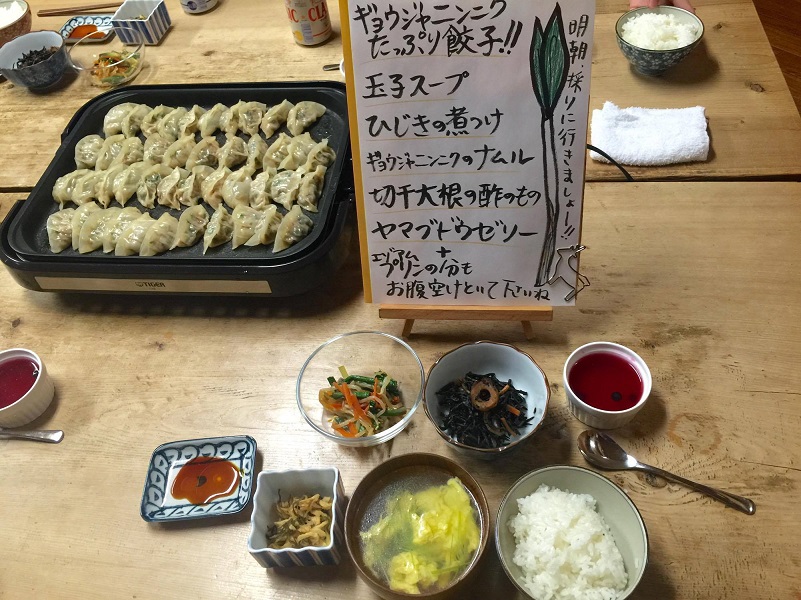 ギョウジャニンニク
たっぷり餃子!!
玉子スープ
ひじきの煮つけ
ギョウジャニンニクのナムル
切干大根の酢のもの
ヤマブドウゼリー
+
エゾアムプリンの分も
お腹空けといて下さいね
明朝、採りに行きましょー!!
TIGER